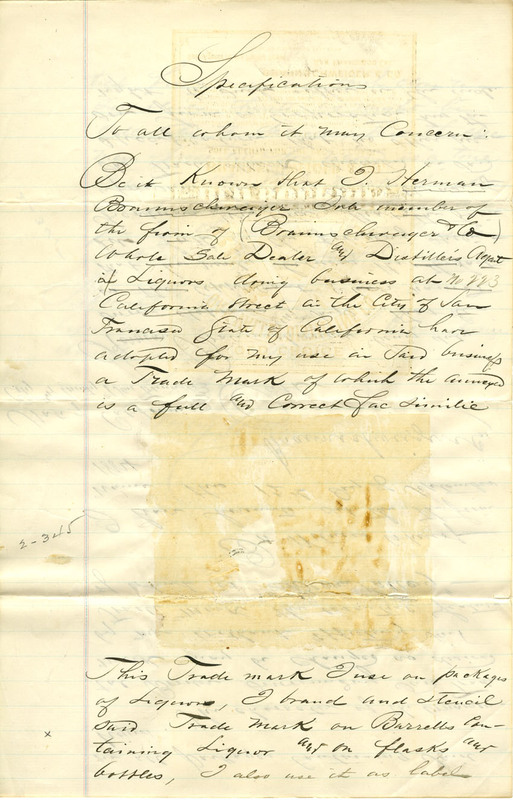 Specifications
To all whom it may Concern:
Be it Known that I Herman
Braunschweiger Sole member of
the firm of (Braunschweiger & Co)
Whole Sale Dealer and Distillers Agent
in Liquors doing business at No 223
California Street in the City of San
Francisco State of California have
adopted for my use in Said business
a Trade Mark of which the annexed
is a full and Correct Fac Similie
2-345
This Trade mark I use on packages
of Liquors, I brand and Stencil
Said Trade Mark on Barrells Con-
x
taining Liquor and on flasks and
bottles, I also use it as label